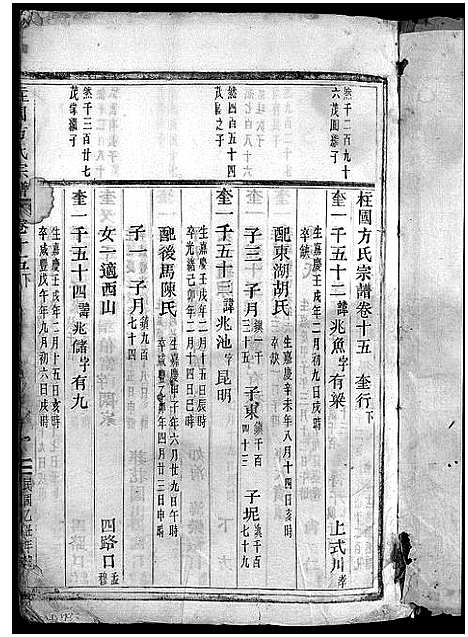 柱國方氏宗譜卷十五 奎行下
然千二百九十六茂園繼子
奎一千五十二 諱兆魚字有梁 上弍川孝
生嘉慶壬戌年二月初六日戌時
卒缺
配東湖胡氏 生嘉慶辛未年八月十四日亥時
卒缺
子三 子月鎮一千三十五 子東鎮千百四十三 子坭鎮千百七十九
然四百五十四茂之子
奎一千五十三 諱兆池字昆明
生嘉慶壬戌年二月十五日辰時
卒光緒己卯年二月十四日巳時
配後馬陳氏 生嘉慶年六月廿九日午時
卒咸豐年四月廿三日申時
子一 子月鎮九百七十四
女一適西山
然千三百廿七茂棠繼子
奎一千五十四 諱兆儲字有九 四路口孟穆
生嘉慶壬戌年二月十五日亥時
卒咸豐戊午年九月初六日戌時
柱國方氏宗譜 卷十五下
民國乙